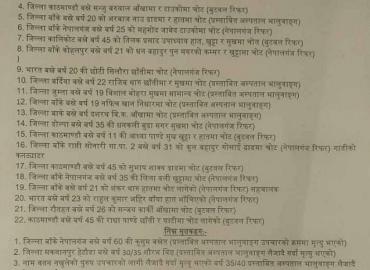 4. जिल्ला काठमाण्डौ बस्ने मन्जु बरवाल आँखामा र टाउकोमा चोट (बुटवल रिफर)
5. जिल्ला बाँके बस्ने वर्ष 20 को अरबाज नाउ ढाडमा र हातमा चोट (प्रस्तावित अस्पताल भालुवाङ्ग)
6. जिल्ला बाँके नेपालगंज बस्ने वर्ष 25 को महमोद जावेद टाउकोमा चोट (नेपालगंज रिफर)
7. जिल्ला कालिकोट बस्ने वर्ष 45 को तिलक प्रसाद उपाध्याय हात, खुट्टा र मुखमा चोट (बुटवल रिफर)
8. जिल्ला बाँके कोहलपुर बस्ने वर्ष 21 को धन बहादुर पुन मगरको कम्मर र खुट्टामा चोट (नेपालगंज रिफर
)
9. भारत वर्ष 20 की छोरी सिलौरा छातीमा चोट (नेपालगंज रिफर)
10. जिल्ला बर्दिया बस्ने वर्ष 22 राजिब थारु छातीमा र मुखमा चोट (प्रस्तावित अस्पताल भालुवाङ्ग)
11. जिल्ला जुम्ला बस्ने वर्ष 19 बिशाल बोहरा मुखमा सामान्य चोट (प्रस्तावित अस्पताल भालुवाङ्ग)
12. जिल्ला बाँके बस्ने वर्ष 19 नफिस खान निधारमा चोट (प्रस्तावित अस्पताल भालुवाङ्ग)
13. जिल्ला बाँके बस्ने वर्ष दशरथ बि.क. आँखामा चोट (प्रस्तावित अस्पताल भालुवाङ्ग)
14. जिल्ला डोल्पा बस्ने वर्ष 35 की धनकली बुढा मगर मुखमा चोट (नेपालगंज रिफर)
15. जिल्ला काठमाण्डौ बस्ने वर्ष 11 की आस्था पाण्डे मुख खुट्टा र हातमा चोट (बुटवल रिफर)
16. जिल्ला बाँके राप्ती सोनारी गा.पा. 2 बस्ने वर्ष 31 को धुन बहादुर गोलाई ढाडमा चोट (नेपालगंज रिफर) गाडीको
कनडक्टर
17. जिल्ला काठमाण्डौ बस्ने वर्ष 45 को सुभाष लाक्स ढाडमा चोट (बुटवल रिफर)
18. जिल्ला बाँके नेपालगंज बस्ने वर्ष 35 की सिता वली खुट्टामा चोट (नेपालगंज रिफर)
19. जिल्ला बाँके बस्ने वर्ष 21 को शंकर थारु हातमा चोट लागेको (नेपालगंज रिफर) सहचालक
20. भारत बस्ने वर्ष 23 को राहुल कुमार अहिर बायाँ हात भाँचिएको (नेपालगंज रिफर)
21. जिल्ला रौतहत बस्ने वर्ष 26 को सन्जय कार्की आँखामा चोट (बुटवल रिफर)
22. काठमाण्डौ बस्ने वर्ष 45 की राधा पाण्डे छाती र घाटीमा चोट लागेको (बुटवल रिफर)
निम्न मृतकहरु:-
1. जिल्ला बाँके नेपालगंज बस्ने वर्ष 60 की कुसुम बस्नेत (प्रस्तावित अस्पताल भालुवाङ्ग उपचारको क्रममा मृत्यु भएको)
2. जिल्ला मकवानपुर हेटौडा बस्ने वर्ष 30/35 सौरभ सिंह (प्रस्तावित अस्पताल भालुवाङ्ग लैजाँदै गर्दा मृत्यु भएको)
3. नाम वतन नखुलेको पुरुष उपचारको लागी लैजादै गर्दा मृत्यु भएको वर्ष 35/40 प्रस्तावित अस्पताल भालुवाङ्ग